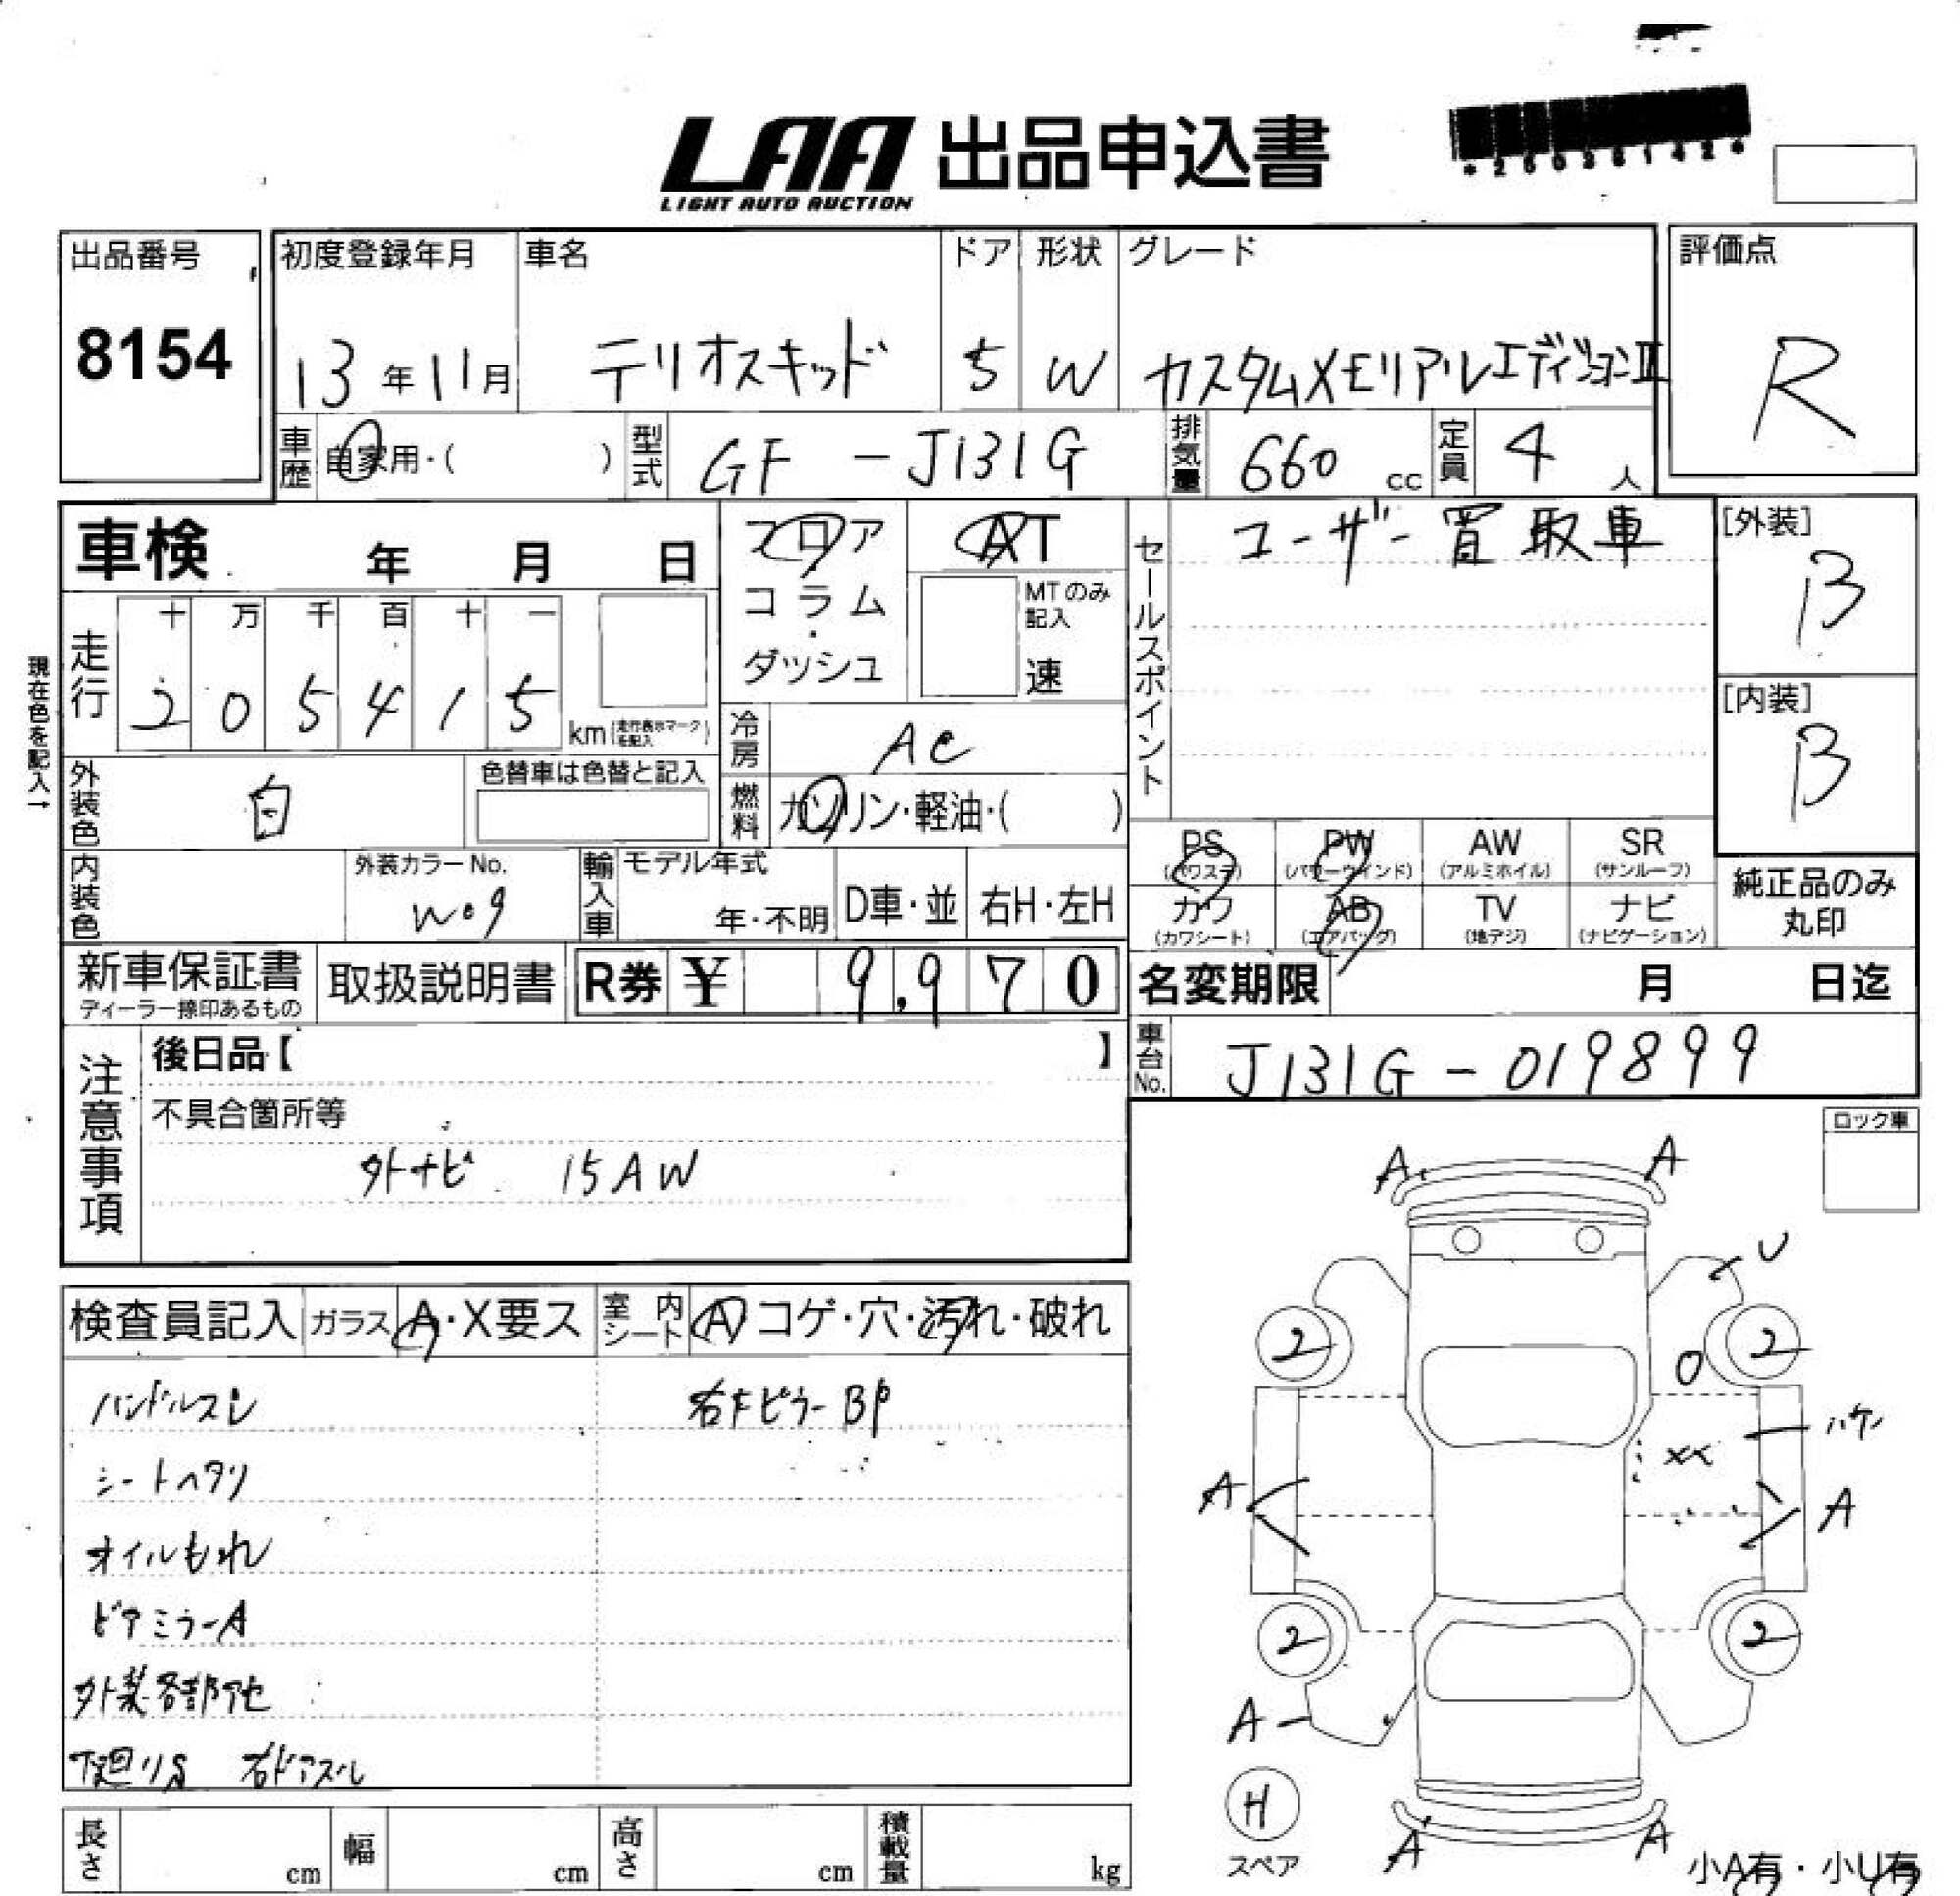 LAA 出品申込書
LIGHT AUTO AUCTION
出品番号
8154
初度登録年月
13年11月
車名
テリオスキッド
ドア
5
形状
W
グレード
カスタムメモリアルエディションⅡ
評価点
R
車歴
自家用・( )
型式
GF - J131G
排気量
660 cc
定員
4 人
車検 年 月 日
フロア
コラム
・
ダッシュ
AT
MTのみ記入
速
セールスポイント
ユーザー買取車
[外装]
B
[内装]
B
現在色を記入→
走行
十 万 千 百 十 一
2 0 5 4 1 5
km (走行表示マークを記入)
冷房
AC
燃料
ガソリン・軽油・( )
外装色
白
色替車は色替と記入
内装色
外装カラーNo.
W09
輸入車
モデル年式
年・不明
D車・並
右H・左H
PS
(パワステ)
PW
(パワーウインド)
AW
(アルミホイル)
SR
(サンルーフ)
カワ
(カワシート)
AB
(エアバッグ)
TV
(地デジ)
ナビ
(ナビゲーション)
純正品のみ
丸印
新車保証書
ディーラー捺印あるもの
取扱説明書
R券 ¥ 9,970
名変期限 月 日迄
注意事項
後日品【 】
不具合箇所等
外ナビ 15AW
車台No.
J131G-019899
ロック車
検査員記入
ガラス
A・X要ス
室内シート
A コゲ・穴・汚れ・破れ
ハンドルスレ
右Fピラー BP
シートヘタリ
オイルもれ
ドアミラーA
外装各部アセ
下廻りS 右ドアスレ
A A
U
2 2
O
ハケ
XX
A A
2 2
A
H
スペア
A A
小A有・小U有
長さ cm
幅 cm
高さ cm
積載量 kg